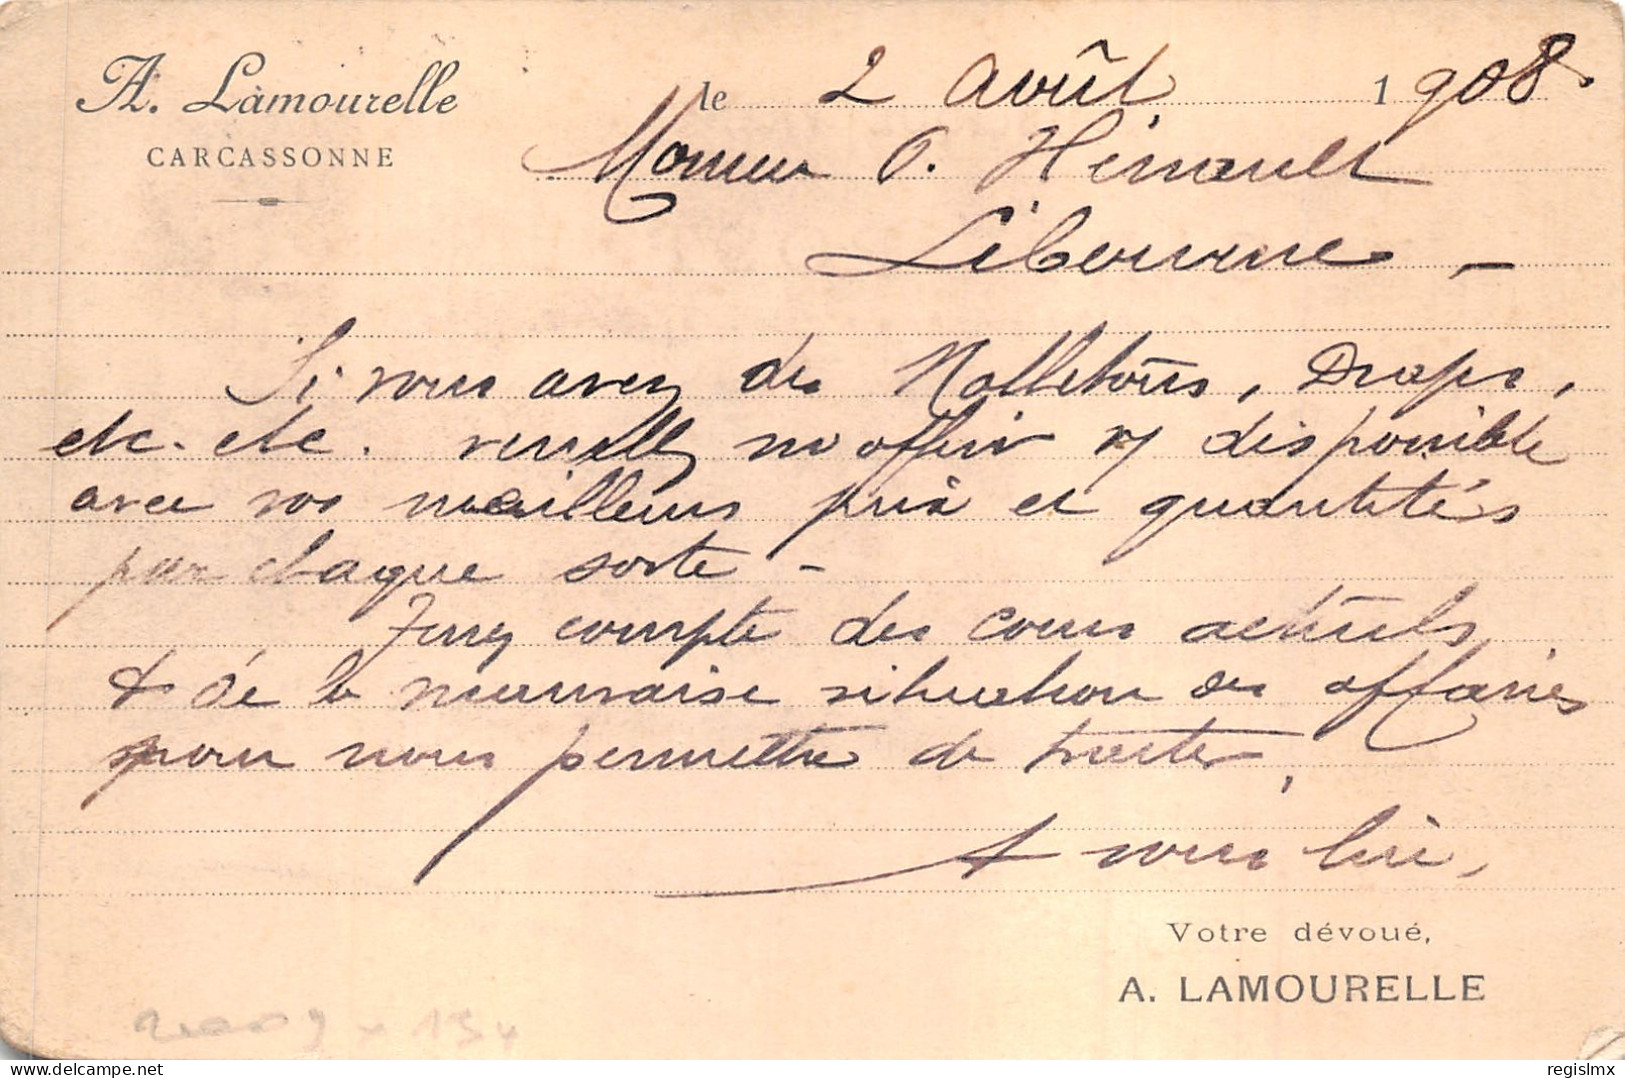 A. Lamourelle
CARCASSONNE
le 2 Août 1908.
Monsieur O. Hérault
Libourne -
Si vous avez des Molletons, Draps,
etc. etc. veuillez m'offrir disponible
avec vos meilleurs prix et quantités
par chaque sorte -
Tenez compte des cours actuels
& de la mauvaise situation des affaires
pour nous permettre de traiter,
A vous lire,
Votre dévoué,
A. LAMOURELLE
regislmx
delcampe.net